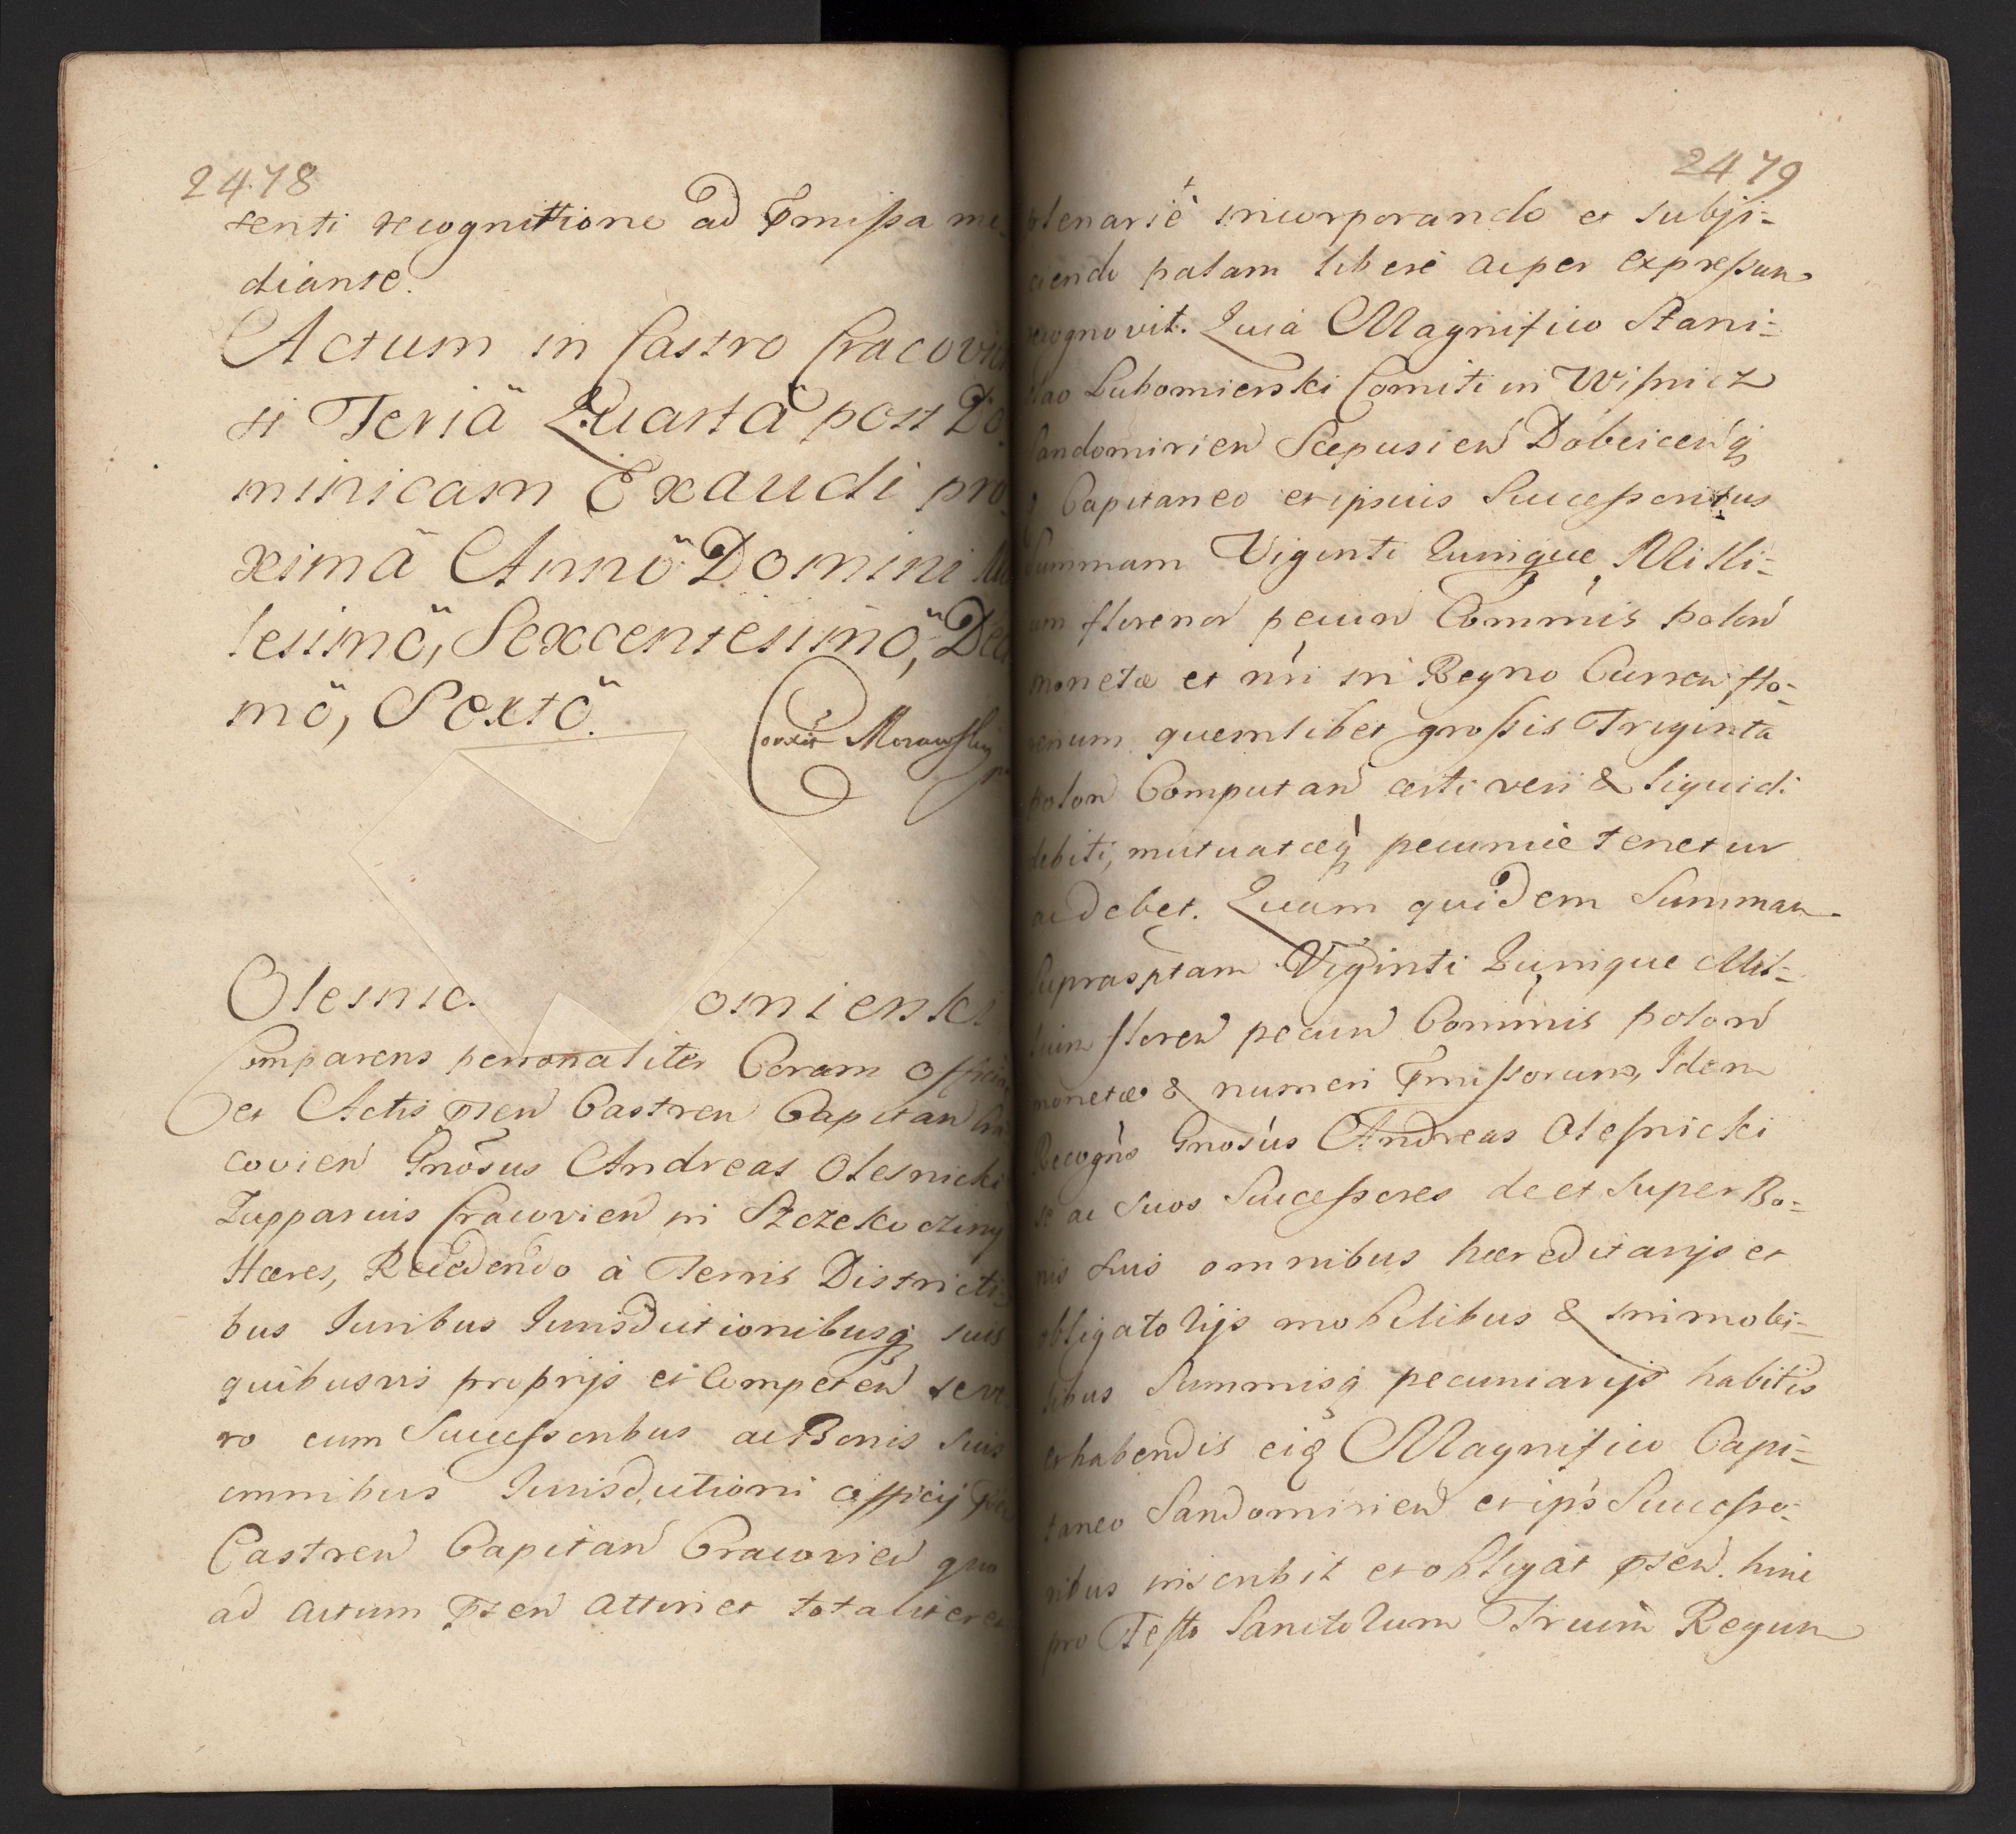 2478
senti recognittione ad Pmissa me-
diante.
Actum in Castro Cracovien
si Feriâ Quartâ post Do-
minicam Exaudi pro-
ximâ Annô Domini Mil
lesimô, Sexcentesimô, Deci
mô, Sextô.
Corexit Morawski
Olesnic omierski
Comparens personaliter Coram Officio
et Actis pnten Castren Capitan Cra
covien Gnosus Andreas Olesnicki
Zupparius Cracovien in Szczekocziny
Hæres, Recedendo à Terris Districti-
bus Juribus Jurisdictionibusq suis
quibusvis proprijs et Competen seve
ro cum Successoribus ac Bonis suis
omnibus Jurisdictioni officij pnten
Castren Capitan Cracovien quo
ad actum pnten attinet totaliter et
2479
plenariè incorporando et subji-
ciendo palam liberè ac per expressum
recognovit. Quia Magnifico Stani-
slao Lubomierski Comiti in Wisnicz
Sandomirien Scepusien Dobcicenq
q Capitaneo et ipsius Successoribus
Summam Viginti Quinque Milli-
um florenor pecun Commis polon
monetæ et nri in Regno Curren flo-
renum quemlibet grossis Triginta
polon Computan certi veri & liquidi
debiti, mutuatæq pecuniæ tenetur
ac debet. Quam quidem Summam
suprasptam Viginti Quinque Mil-
lium floren pecun Commis polon
monetæ & numeri Pmissorum, Idem
Recogns Gnosus Andreas Olesnicki
se ac suos Successores de et super Bo-
nis suis omnibus hæreditarijs et
obligatorijs mobilibus & immobi-
libus Summisq pecuniarijs habitis
et habendis eiq Magnifico Capi-
taneo Sandomirien et ips Successo-
ribus inscribit et obligat pnten. hinc
pro Festo Sanctorum Trium Regum